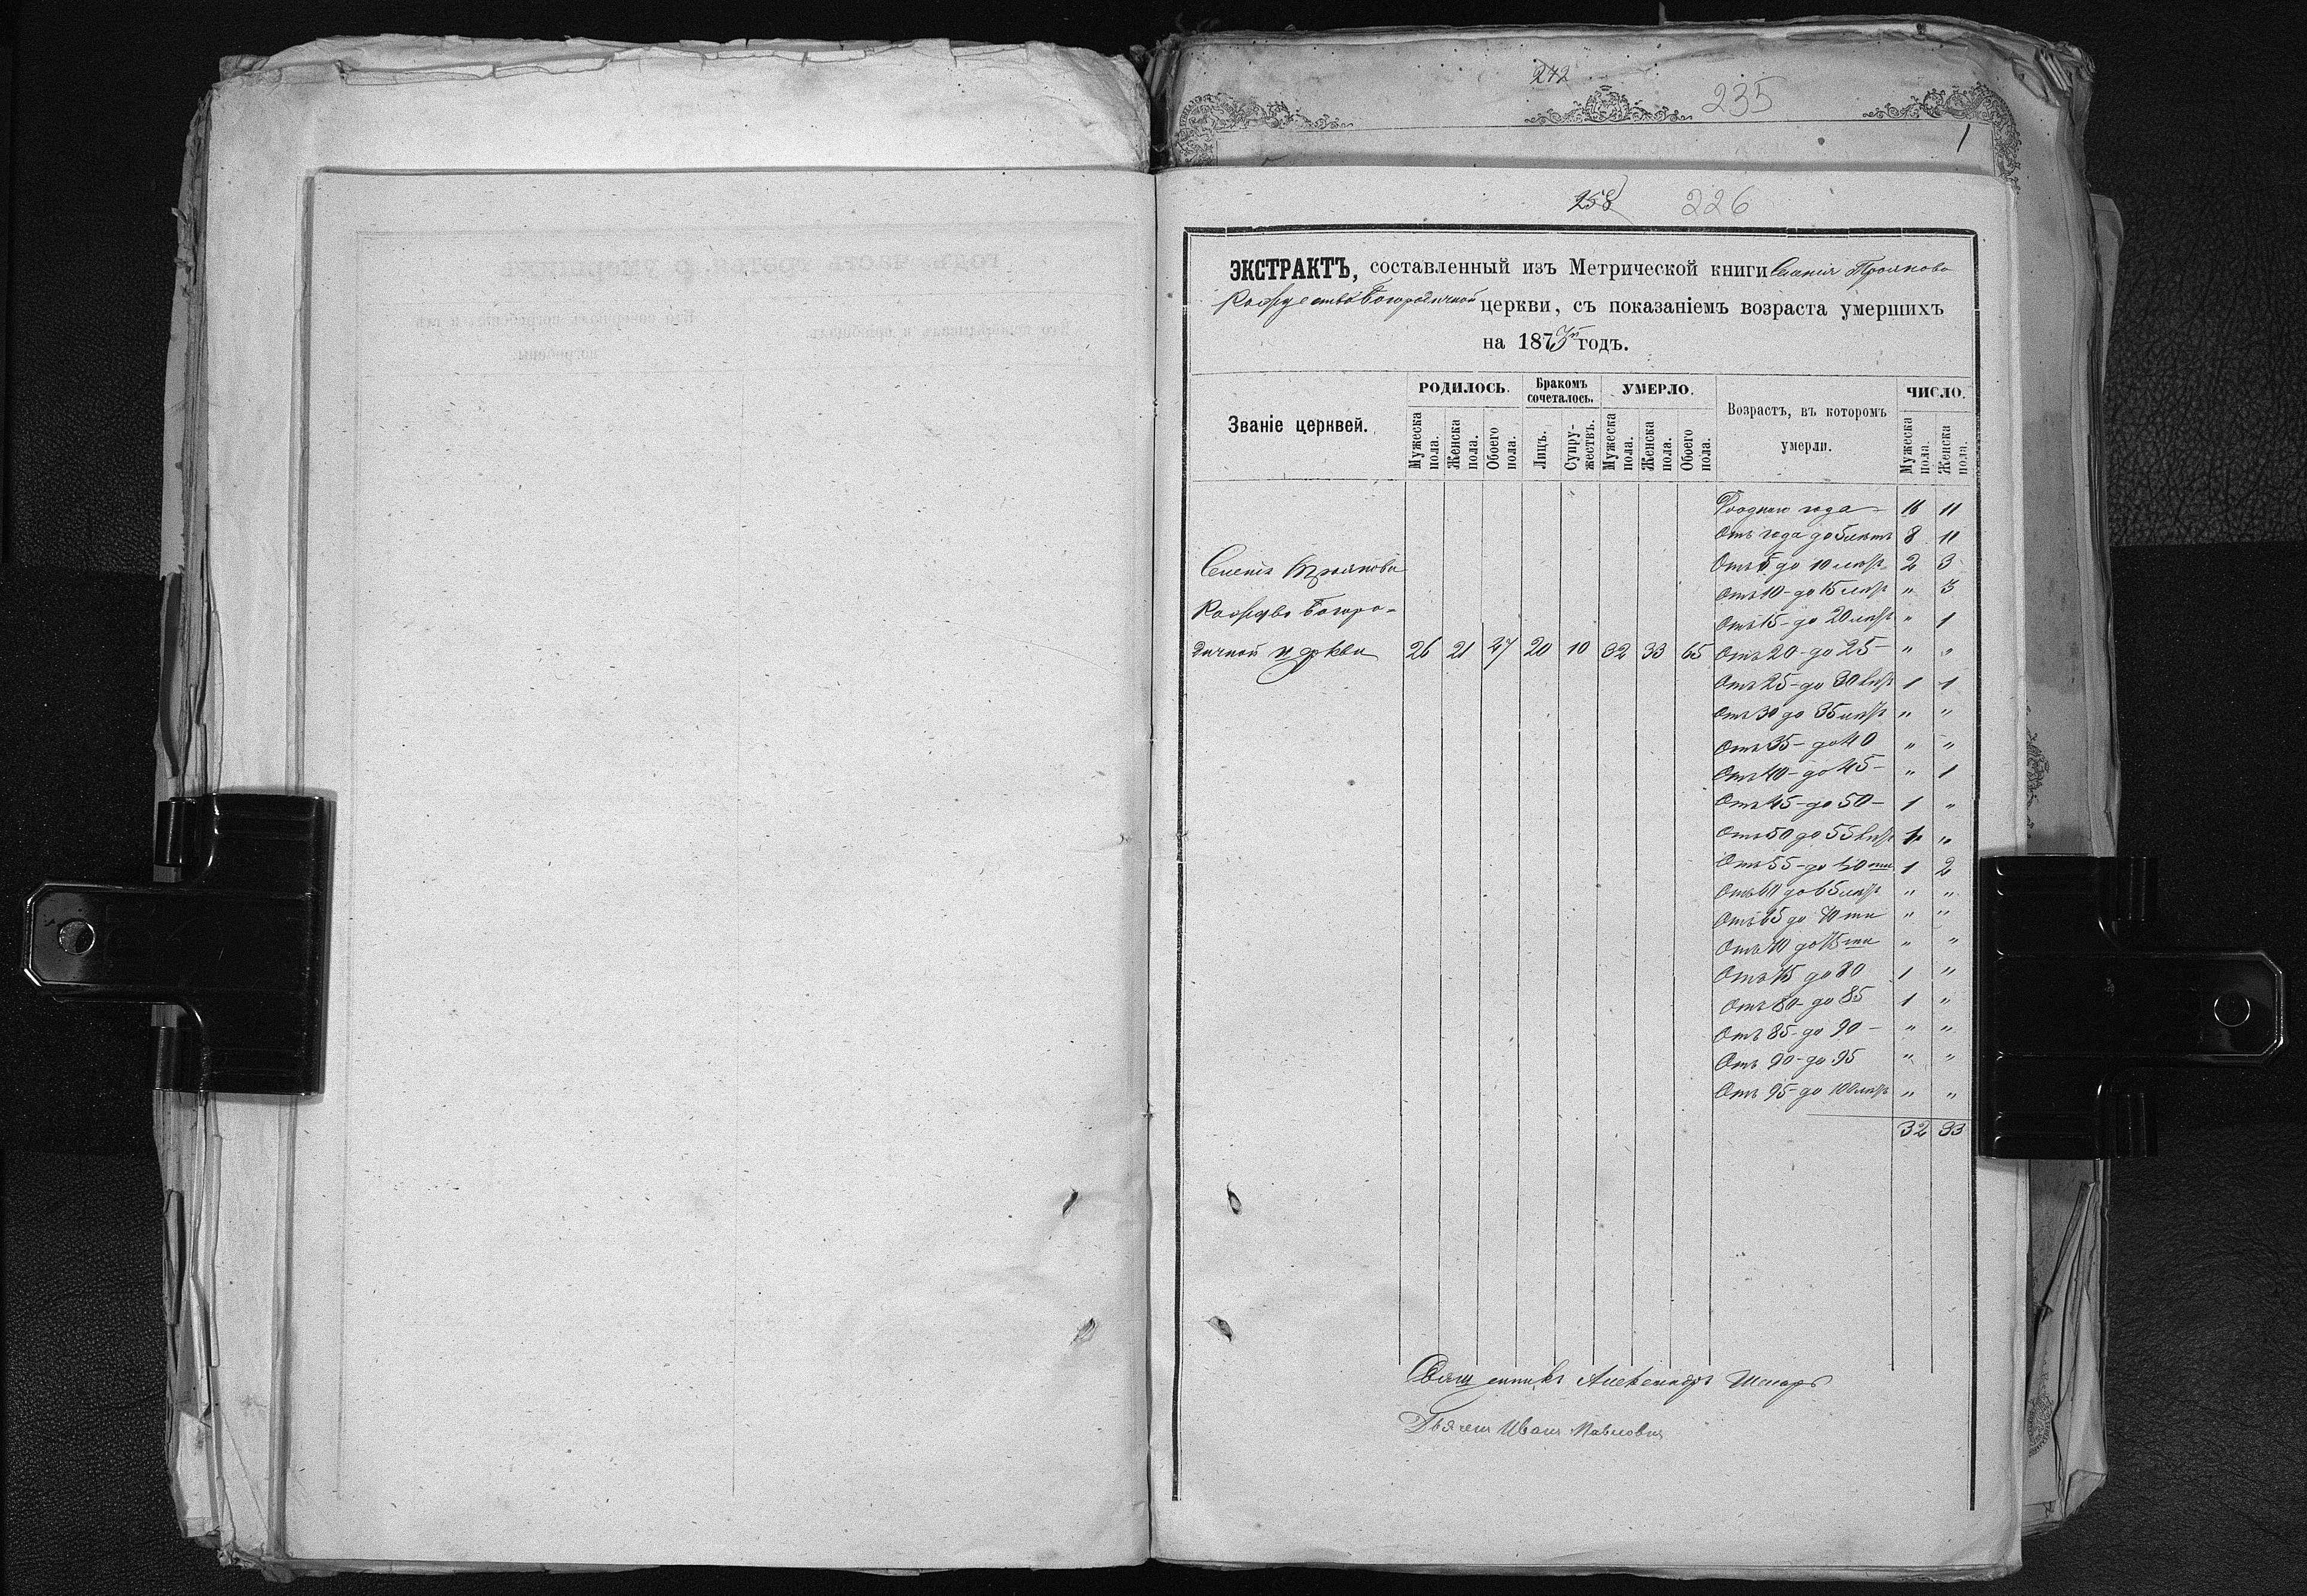 242
235
1
258
226
ЭКСТРАКТЪ, составленный изъ Метрической книги Селенія Троянова
Рождество Богородичной церкви, съ показаніемъ возраста умершихъ
на 1873й годъ.
Званіе церквей.
РОДИЛОСЬ.
Бракомъ сочеталось.
УМЕРЛО.
Возрастъ, въ которомъ умерли.
ЧИСЛО.
Мужеска пола.
Женска пола.
Обоего пола.
Лицъ.
Супружествъ.
Мужеска пола.
Женска пола.
Обоего пола.
Мужеска пола.
Женска пола.
До одного года 16 11
Отъ года до 5 лѣтъ 8 11
Отъ 5 до 10 лѣтъ 2 3
Отъ 10 до 15 лѣтъ " 3
Отъ 15 до 20 лѣтъ " 1
Селенія Троянова
Рождво Богоро-
дичной церкви 26 21 47 20 10 32 33 65
Отъ 20 до 25 " "
Отъ 25 до 30 лѣтъ 1 1
Отъ 30 до 35 лѣтъ " "
Отъ 35 до 40 " "
Отъ 40 до 45 " 1
Отъ 45 до 50 1 "
Отъ 50 до 55 лѣтъ 1 "
Отъ 55 до 60 ти 1 2
Отъ 60 до 65 лѣтъ " "
Отъ 65 до 70 ти " "
Отъ 70 до 75 ти " "
Отъ 75 до 80 1 "
Отъ 80 до 85 1 "
Отъ 85 до 90 " "
Отъ 90 до 95 " "
Отъ 95 до 100 лѣтъ " "
32 33
Священникъ Александръ
Дьячекъ Иванъ Павловичъ